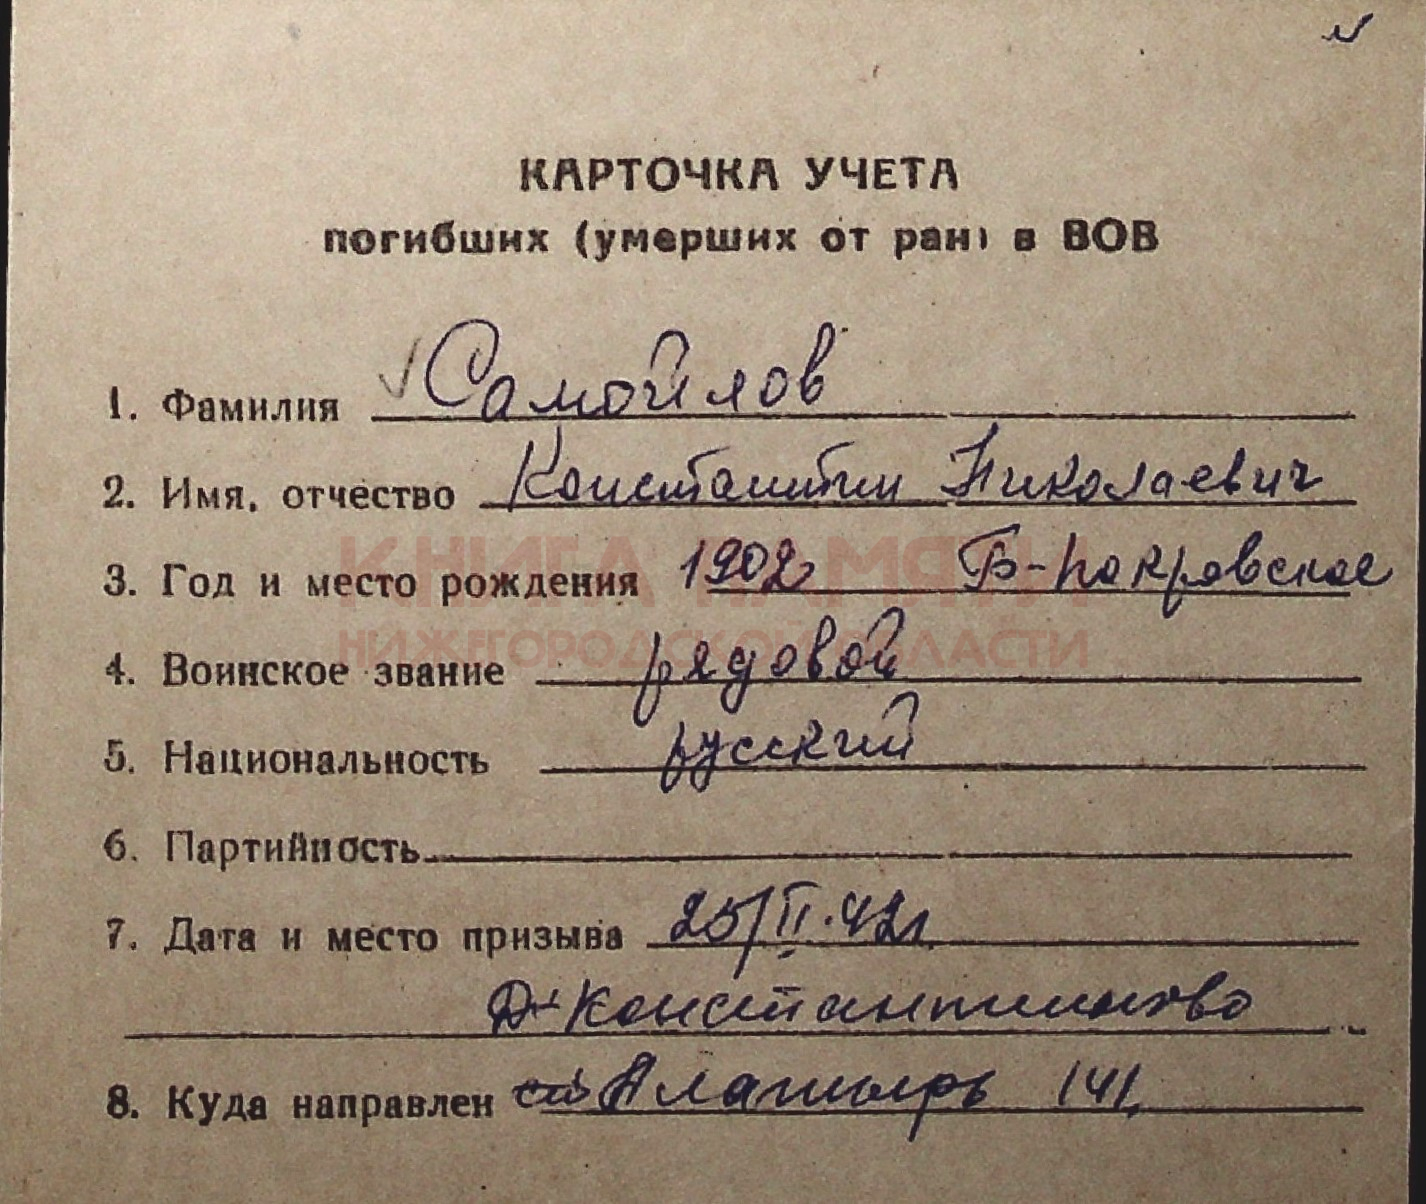 КАРТОЧКА УЧЕТА
погибших (умерших от ран) в ВОВ
1. Фамилия Самойлов
2. Имя, отчество Константин Николаевич
3. Год и место рождения 1902 Б-Покровское
КНИГА ПАМЯТИ
НИЖЕГОРОДСКОЙ ОБЛАСТИ
4. Воинское звание рядовой
5. Национальность русский
6. Партийность
7. Дата и место призыва 25/II.42г.
Д-Константиново
8. Куда направлен Алатырь 141.